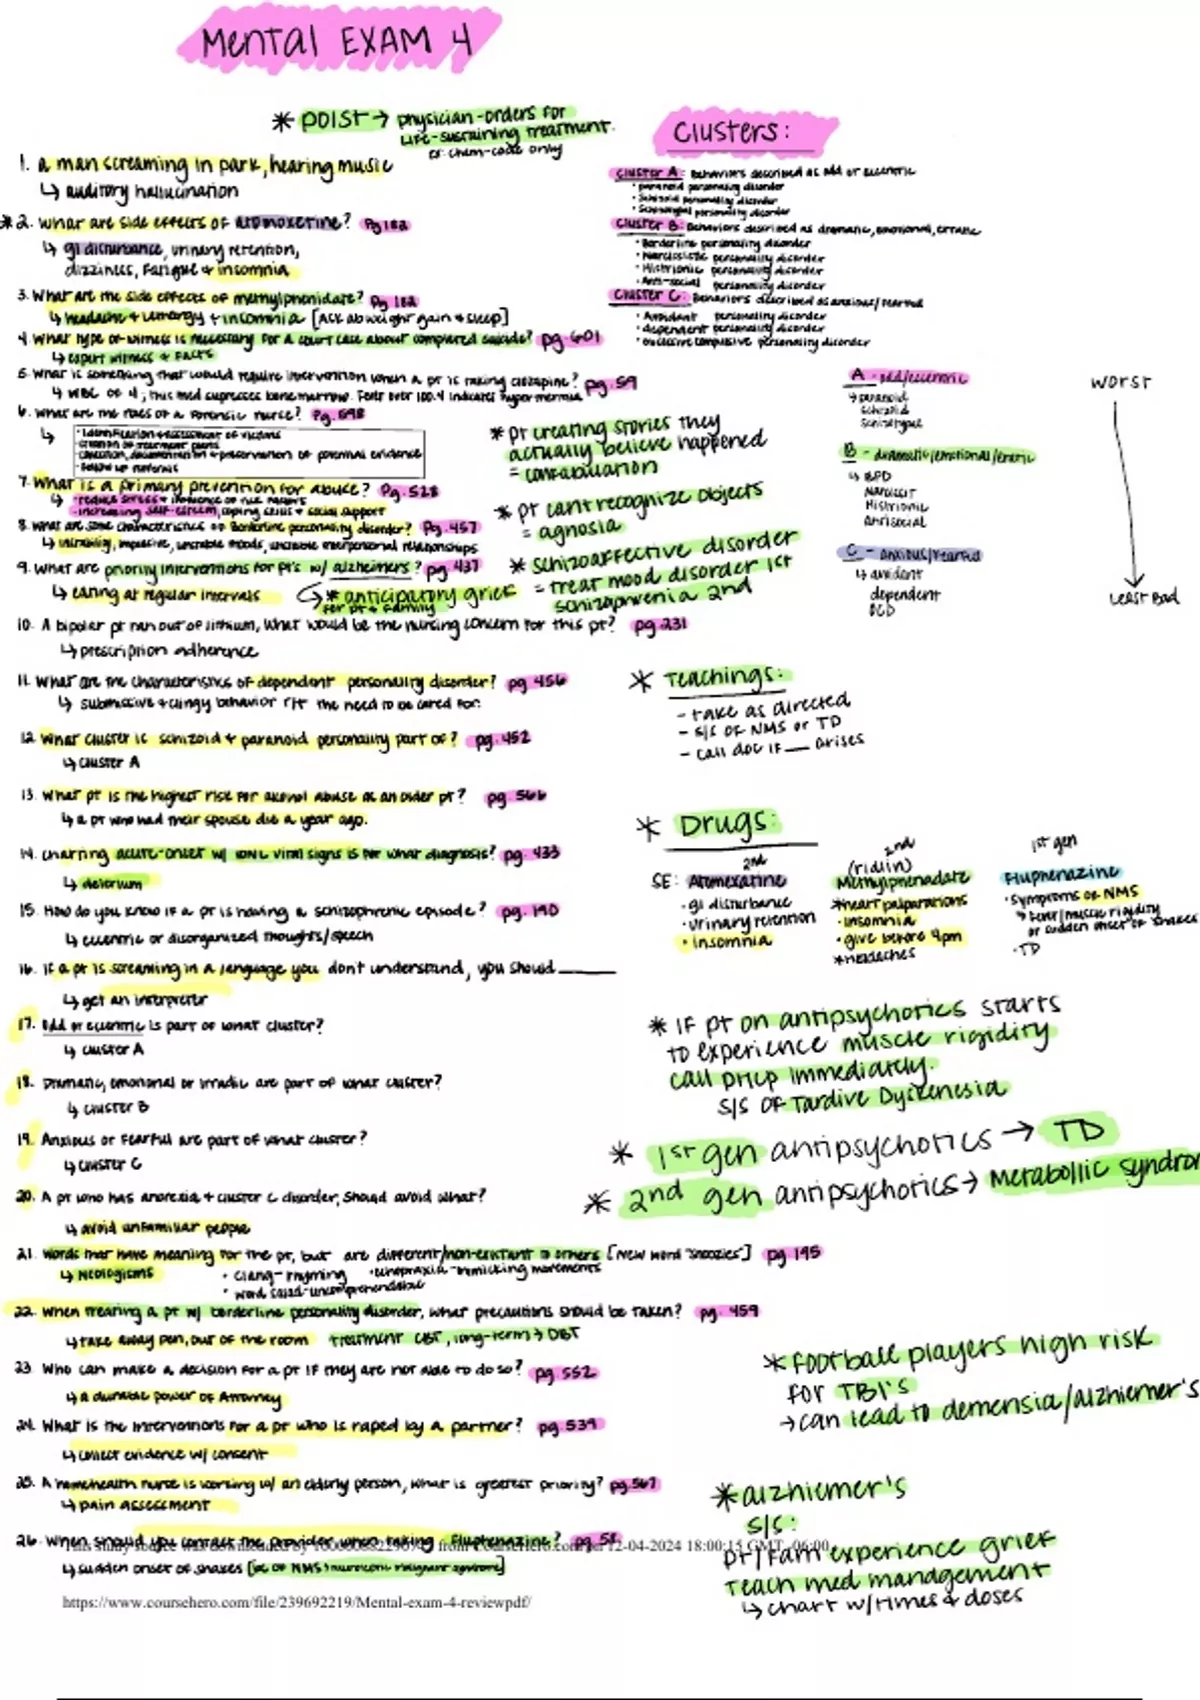 Mental EXAM 4
* POLST → physician-orders for
life-sustaining treatment.
ex: chem-code only
1. a man screaming in park, hearing music
↳ auditory hallucination
*2. What are side effects of atomoxetine? Pg 182
↳ gi disturbance, urinary retention,
dizziness, fatigue + insomnia
3. What are the side effects of methylphenidate? Pg 182
↳ headache + + insomnia [Ask ab weight gain + sleep]
4. What type of witness is necessary for a court case about completed suicide? pg. 601
↳ expert witness + facts
5. What is something that would require intervention when a pt is taking clozapine? pg. 59
↳ WBC of 4; this med supresses bone marrow. Fever over 100.4 indicates hyperthermia
6. What are the roles of a forensic nurse? Pg. 598
↳ · Identification + assessment of victims
· creation of treatment plans
· collection, documentation + preservation of potential evidence
· follow up referrals
7. What is a primary prevention for abuse? Pg. 528
↳ · reduce stress + influence of risk factors
· increasing self-esteem, coping skills + social support
8. What are some characteristics of Borderline personality disorder? Pg. 457
↳ instability, impulsive, unstable moods, unstable interpersonal relationships
9. What are priority interventions for pt's w/ alzheimers? pg 437
↳ eating at regular intervals
* anticipatory grief
for pt + family
10. A bipolar pt ran out of lithium, What would be the nursing concern for this pt? pg 231
↳ prescription adherence
11. What are the characteristics of dependent personality disorder? pg 456
↳ submissive + clingy behavior r/t the need to be cared for.
12. What cluster is schizoid + paranoid personality part of? pg. 452
↳ cluster A
13. What pt is the highest risk for alcohol abuse as an older pt? pg 566
↳ a pt who had their spouse die a year ago.
14. charting acute-onset w/ vital signs is for what diagnosis? pg. 433
↳ delirium
15. How do you know if a pt is having a schizophrenic episode? pg. 190
↳ eccentric or disorganized thoughts/speech
16. if a pt is screaming in a language you don't understand, you should ______
↳ get an interpreter
17. Odd or eccentric is part of what cluster?
↳ cluster A
18. Dramatic, emotional or are part of what cluster?
↳ cluster B
19. Anxious or fearful are part of what cluster?
↳ cluster C
20. A pt who has anorexia + cluster C disorder, should avoid what?
↳ avoid unfamiliar people
21. words that have meaning for the pt, but are different/non-existant to others [New word "snoozies"] pg 195
↳ Neologisms · clang-rhyming · echopraxia-mimicking movements
· word salad-uncomprehendable
22. When treating a pt w/ borderline personality disorder, what precautions should be taken? pg. 459
↳ take away pen, out of the room treatment CBT, long-term → DBT
23. Who can make a decision for a pt if they are not able to do so? pg. 552
↳ a durable power of Attorney
24. What is the interventions for a pt who is raped by a partner? pg 539
↳ collect evidence w/ consent
25. A homehealth nurse is working w/ an elderly person, what is greatest priority? pg. 567
↳ pain assessment
26. When should you contact the provider when taking Fluphenazine? pg. 58
↳ sudden onset of shakes [bc of NMS; neuroleptic malignant syndrome]
Clusters:
Cluster A: Behaviors described as odd or eccentric
· paranoid personality disorder
· Schizoid personality disorder
· Schizotypal personality disorder
Cluster B: Behaviors described as dramatic, emotional, erratic
· Borderline personality disorder
· Narcissistic personality disorder
· Histrionic personality disorder
· Anti-social personality disorder
Cluster C: Behaviors described as anxious/fearful
· Avoidant personality disorder
· dependent personality disorder
· obsessive compulsive personality disorder
A - odd/eccentric
↳ paranoid
schizoid
schizotypal
B - dramatic/emotional/erratic
↳ BPD
Narcissit
Histrionic
antisocial
C - anxious/fearful
↳ avoident
dependent
OCD
worst
least Bad
* pt creating stories they
actually believe happened
= confabulation
* pt can't recognize objects
= agnosia
* schizoaffective disorder
= treat mood disorder 1st
schizophrenia 2nd
* Teachings:
- take as directed
- s/s of NMS or TD
- call doc if ___ arises
* Drugs:
2nd
SE: Atomexatine
· gi disturbance
· urinary retention
· insomnia
2nd
(ridlin)
Methylphenadate
*heart palpatations
· insomnia
· give before 4pm
*headaches
1st gen
Fluphenazine
· symptoms of NMS
↳ fever/muscle rigidity
or sudden onset of shakes
· TD
* IF pt on antipsychotics starts
to experience muscle rigidity
call immediately.
S/S OF Tardive Dyskenesia
* 1st gen antipsychotics → TD
* 2nd gen antipsychotics → Metabollic syndrom
* football players high risk
for TBI's
→ can lead to demensia/alzhiemer's
* alzhiemer's
S/S:
pt/fam experience grief
Teach med management
↳ chart w/times & doses
12-04-2024 18:00:15 GMT -06:00
https://www.coursehero.com/file/239692219/Mental-exam-4-reviewpdf/